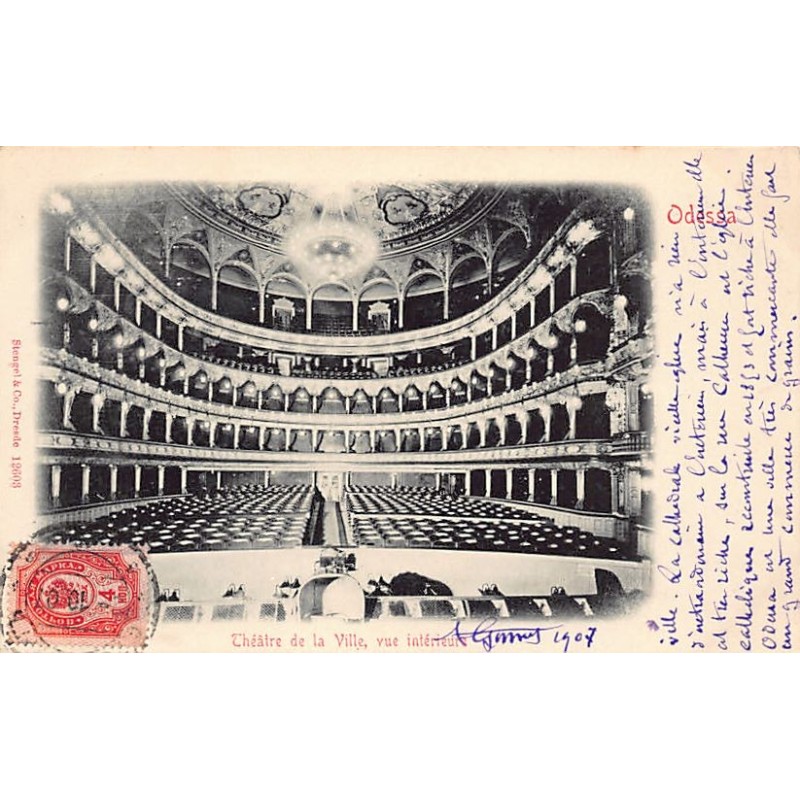 Odessa
Stengel & Co., Dresde 12608
МАРКА
4
Théâtre de la Ville, vue intérieure
1907
ville. La cathédrale vieille église n'a rien
d'extraordinaire à l'extérieur, mais à l'intérieur elle
est très riche, sur la rue Catherine est l'église
catholique reconstruite en 1853 et fort riche à l'intérieur
Odessa est une ville très commerçante elle fait
un grand commerce de grains.